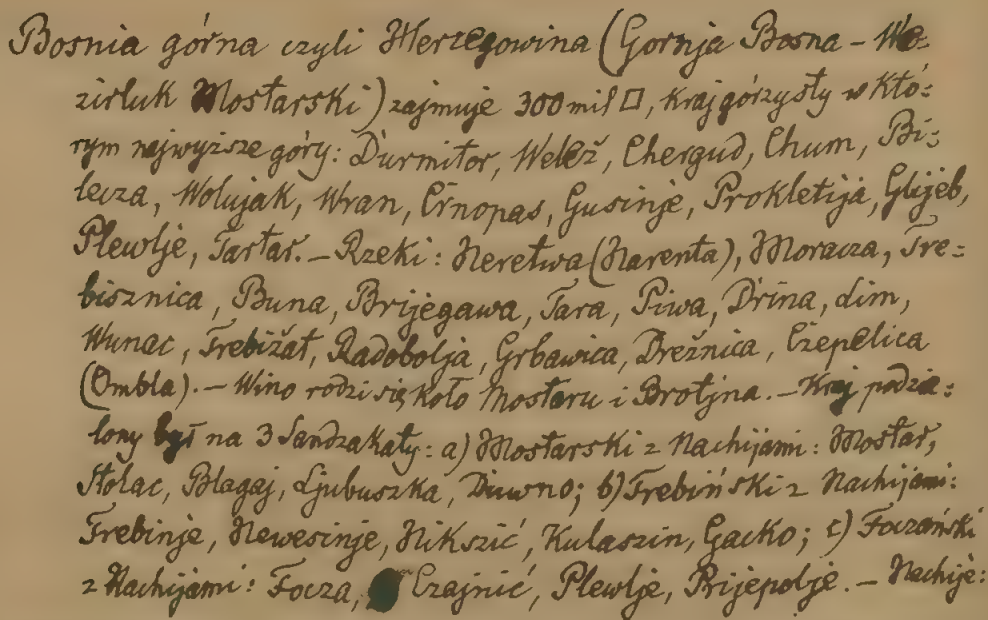 Bosnia górna czyli Herzegowina (Gornja Bosna - We=
zirluk Mostarski) zajmuje 300 mil □, kraj górzysty w któ=
rym najwyższe góry: Durmitor, Welež, Chergud, Chum, Bi=
lecza, Wolujak, Wran, Crnopas, Gusinje, Prokletija, Glijeb,
Plewlje, Tartar. - Rzeki: Neretwa (Narenta), Moracza, Tre=
bisznica, Buna, Brijegawa, Tara, Piwa, Drina, Lim,
Wunac, Trebižat, Radobolja, Grbawica, Drežnica, Czepelica
(Ombla). - Wino rodzi się koło Mostaru i Brotjna. - Kraj podzie=
lony był na 3 Sandzakaty: a) Mostarski z Nachijami: Mostar,
Stolac, Blagaj, Ljubuszka, Duwno; b) Trebiński z Nachijami:
Trebinje, Newesinje, Nikszić, Kulaszin, Gacko; c) Foczański
z Nachijami: Focza, Czajnić, Plewlje, Prijepolje. - Nachije: